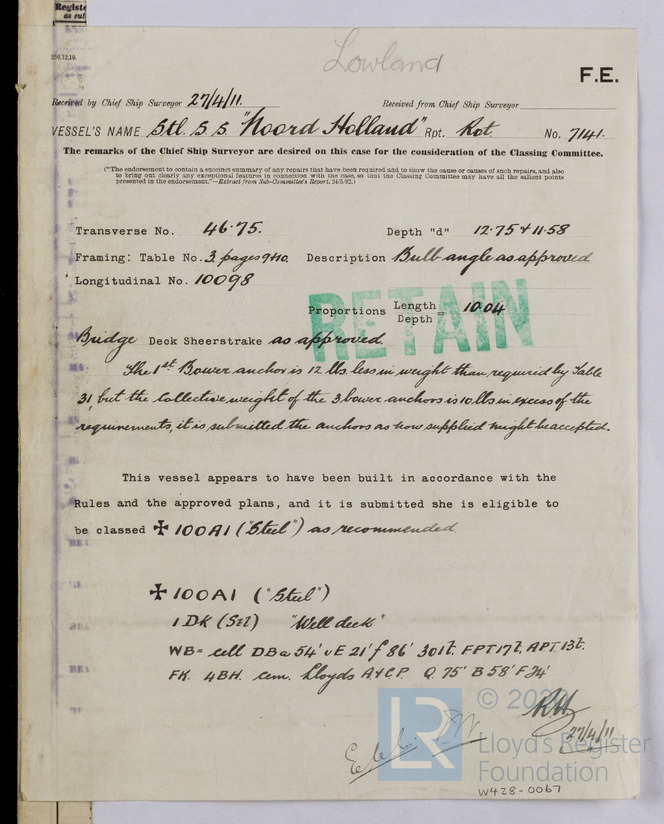 Registe
as out
Lowland
F.E.
Received by Chief Ship Surveyor 27/4/11. Received from Chief Ship Surveyor
VESSEL'S NAME Stl. S.S. "Noord Holland" Rpt. Rot. No. 7141.
The remarks of the Chief Ship Surveyor are desired on this case for the consideration of the Classing Committee.
("The endorsement to contain a succinct summary of any repairs that have been required and to show the cause or causes of such repairs, and also
to bring out clearly any exceptional features in connection with the case, so that the Classing Committee may have all the salient points
presented in the endorsement."—Extract from Sub-Committee's Report, 24/5/92.)
Transverse No. 46.75. Depth "d" 12.75 & 11.58
Framing: Table No. 3. pages 9 & 10. Description Bulb angle as approved
Longitudinal No. 10098
RETAIN
Proportions Length / Depth = 10.04
Bridge Deck Sheerstrake as approved.
The 1st Bower anchor is 12 lbs. less in weight than required by Table
31, but the collective weight of the 3 bower anchors is 10 lbs in excess of the
requirements, it is submitted the anchors as now supplied might be accepted.
This vessel appears to have been built in accordance with the
Rules and the approved plans, and it is submitted she is eligible to
be classed ✠ 100A1 ("Steel") as recommended.
✠ 100A1 ("Steel")
1 DK (Stl) "Well deck"
WB= cell DBa 54' uE 21' f 86' 301t. FPT 17t. APT 13t.
FK. 4BH. cem. Lloyds A&CP. Q 75' B 58' F 24'
27/4/11
LR
Lloyd's Register
Foundation
W428-0067